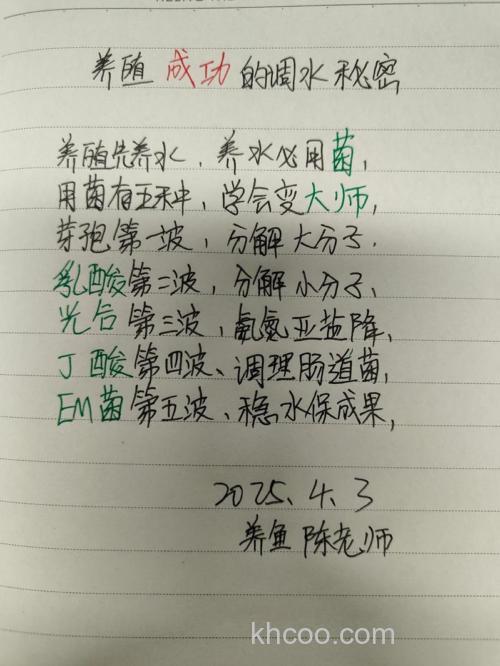 养殖成功的调水秘密
养殖先养水，养水必用菌，
用菌有五种，学会变大师，
芽孢第一波，分解大分子.
乳酸第二波，分解小分子、
光合第三波，氨氮亚盐降，
丁酸第四波、调理肠道菌，
EM菌第五波、稳水保成果，
2025.4.3
养鱼陈老师
khcoo.com